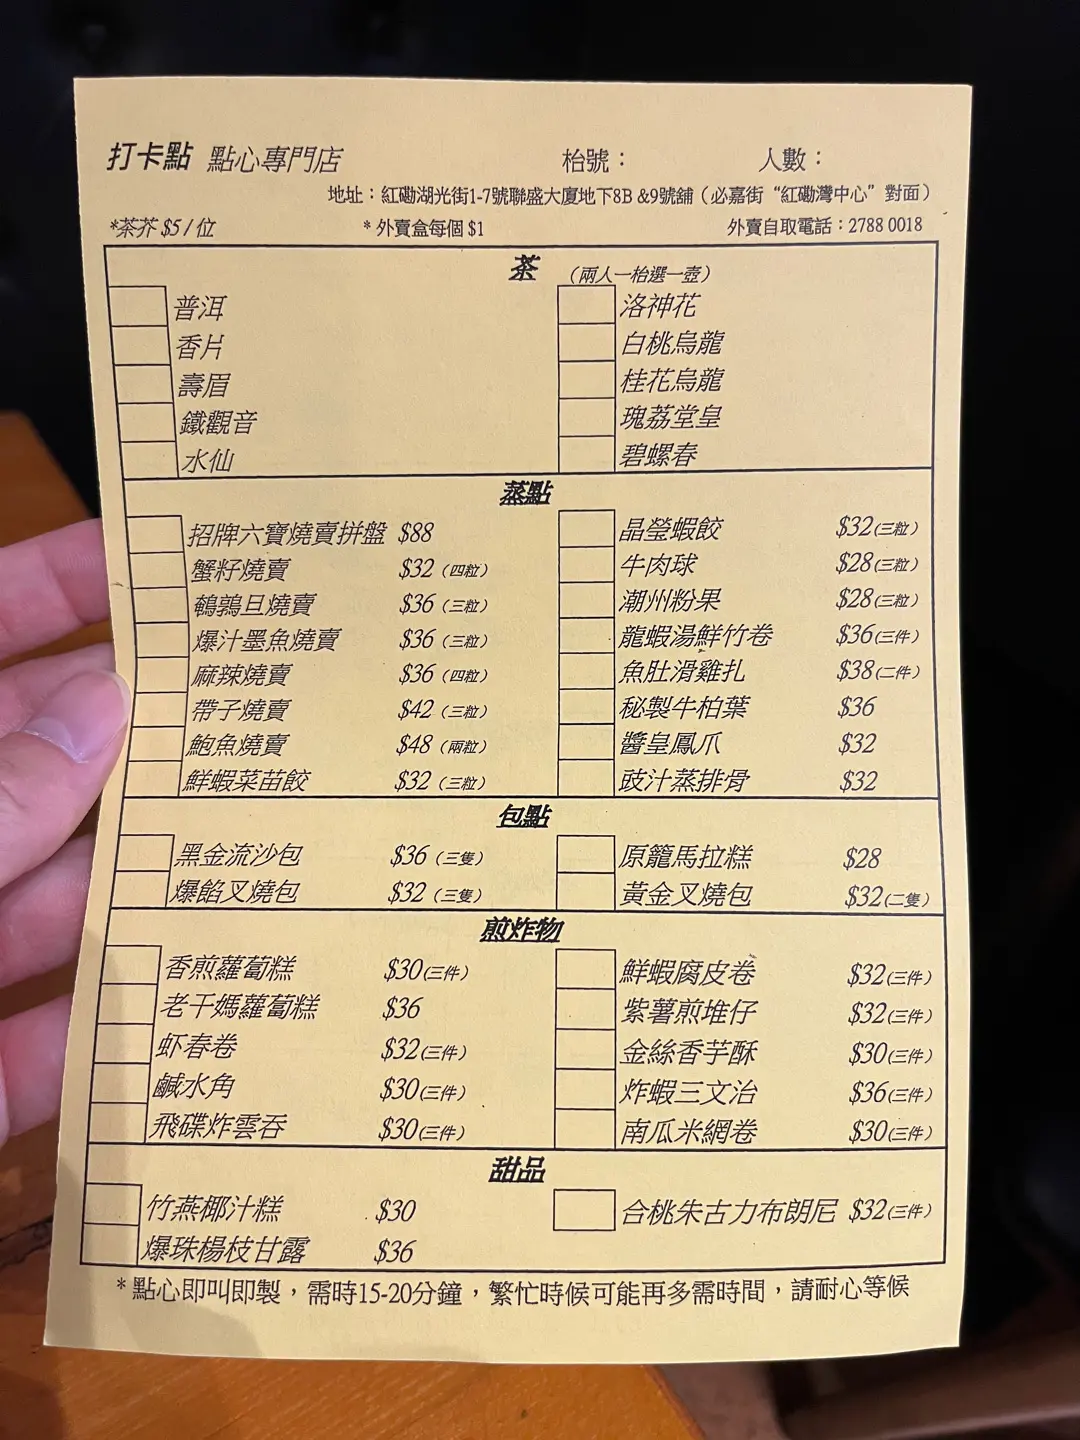 打卡點 點心專門店 枱號： 人數：
地址：紅磡湖光街1-7號聯盛大廈地下8B &9號舖（必嘉街“紅磡灣中心”對面）
*茶芥 $5 / 位 * 外賣盒每個 $1 外賣自取電話：2788 0018
茶 （兩人一枱選一壺）
普洱 洛神花
香片 白桃烏龍
壽眉 桂花烏龍
鐵觀音 瑰荔堂皇
水仙 碧螺春
蒸點
招牌六寶燒賣拼盤 $88 晶瑩蝦餃 $32(三粒)
蟹籽燒賣 $32（四粒） 牛肉球 $28(三粒)
鵪鶉旦燒賣 $36（三粒） 潮州粉果 $28(三粒)
爆汁墨魚燒賣 $36（三粒） 龍蝦湯鮮竹卷 $36(三件)
麻辣燒賣 $36（四粒） 魚肚滑雞扎 $38(二件)
帶子燒賣 $42（三粒） 秘製牛柏葉 $36
鮑魚燒賣 $48（兩粒） 醬皇鳳爪 $32
鮮蝦菜苗餃 $32（三粒） 豉汁蒸排骨 $32
包點
黑金流沙包 $36（三隻） 原籠馬拉糕 $28
爆餡叉燒包 $32（三隻） 黃金叉燒包 $32(二隻)
煎炸物
香煎蘿蔔糕 $30(三件) 鮮蝦腐皮卷 $32(三件)
老干媽蘿蔔糕 $36 紫薯煎堆仔 $32(三件)
虾春卷 $32(三件) 金絲香芋酥 $30(三件)
鹹水角 $30(三件) 炸蝦三文治 $36(三件)
飛碟炸雲吞 $30(三件) 南瓜米網卷 $30(三件)
甜品
竹燕椰汁糕 $30 合桃朱古力布朗尼 $32(三件)
爆珠楊枝甘露 $36
* 點心即叫即製，需時15-20分鐘，繁忙時候可能再多需時間，請耐心等候